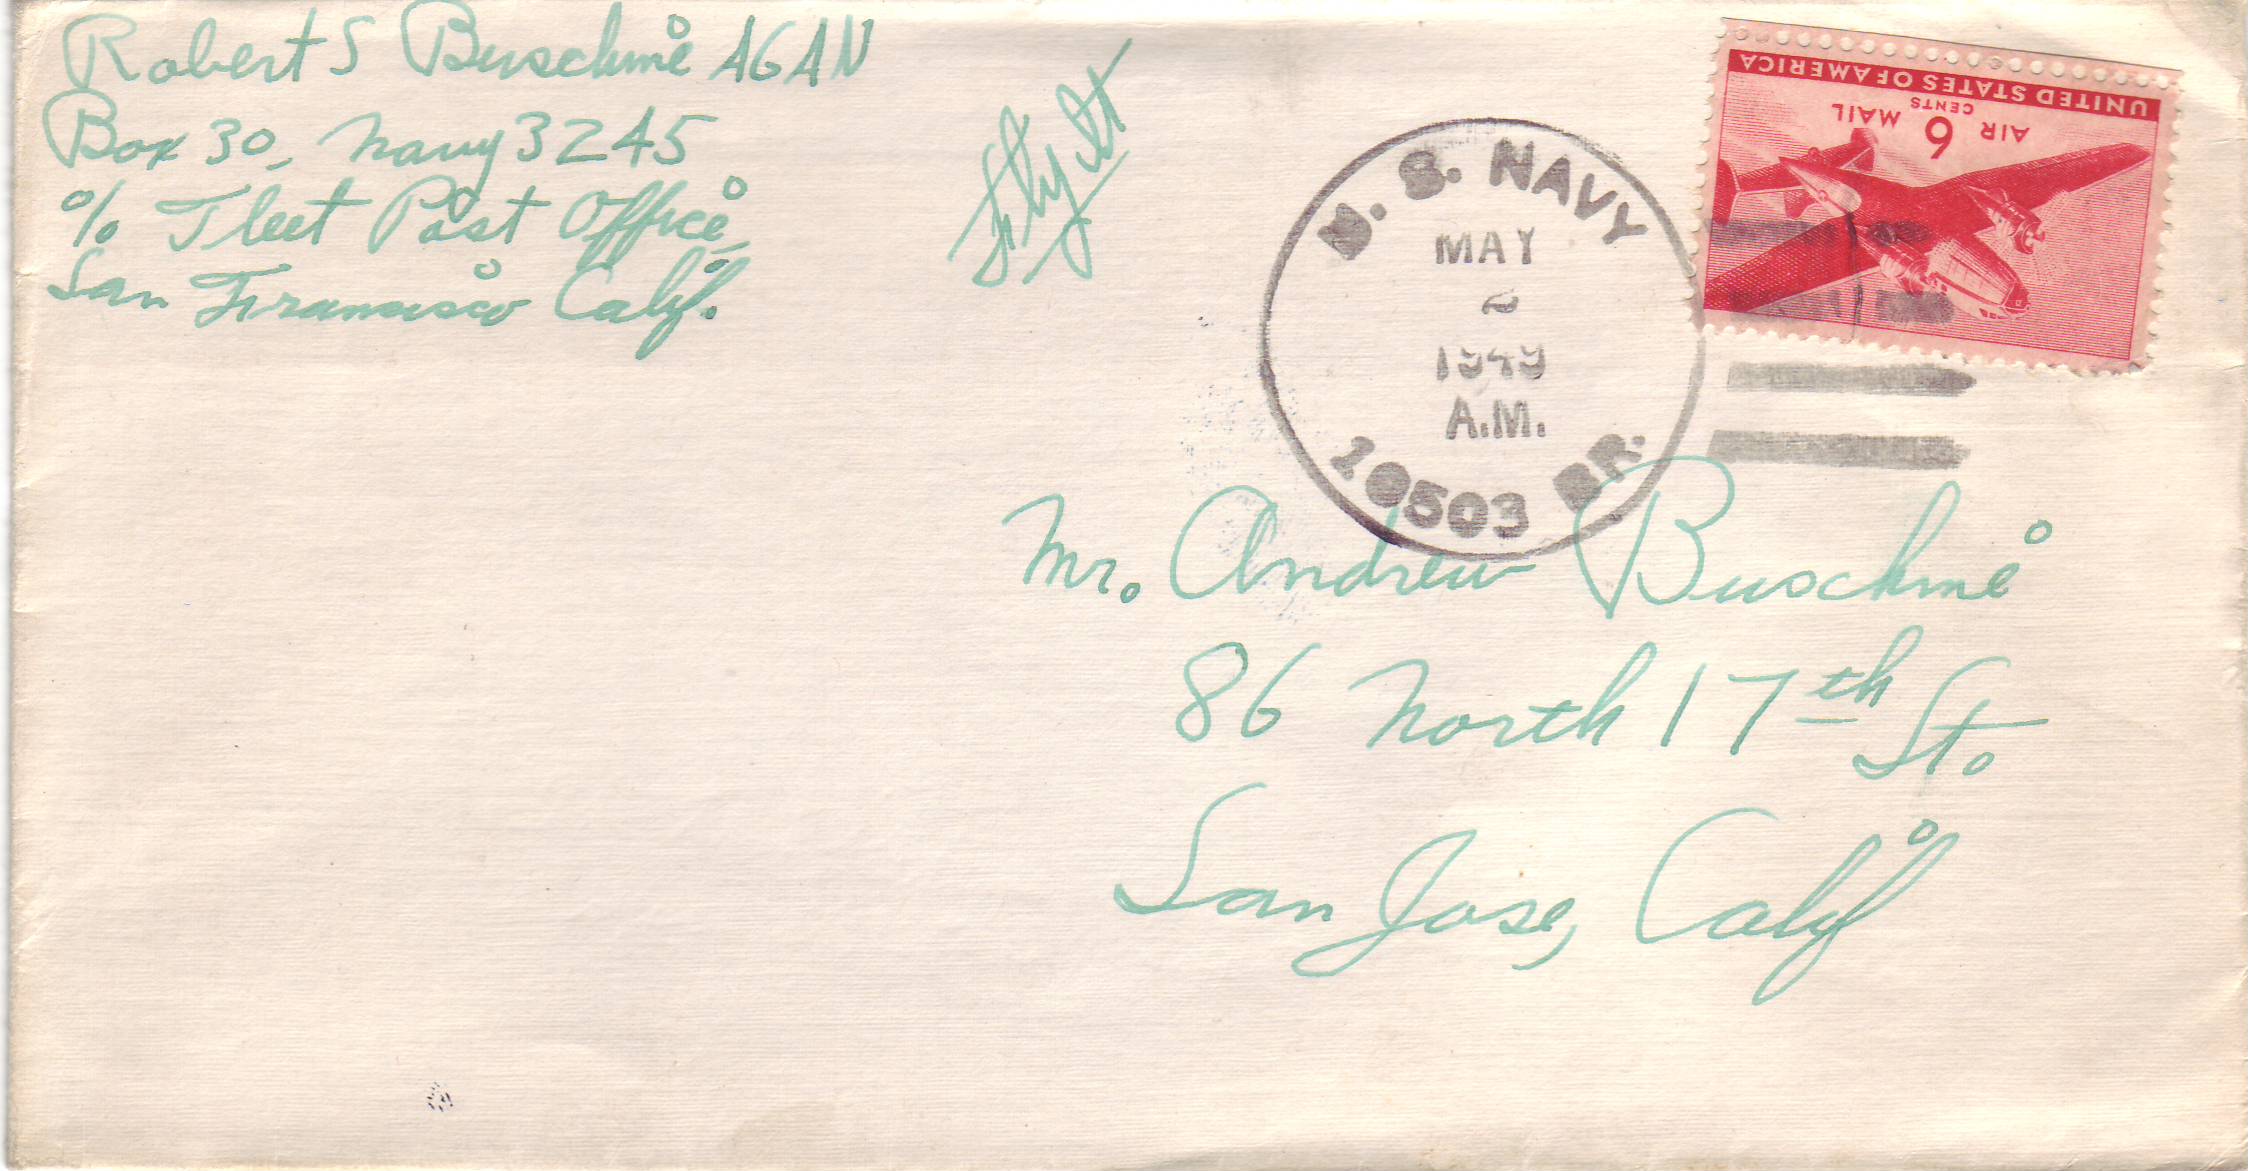 Robert S Buschine AGAN
Box 30, Navy 3245
c/o Fleet Post Office,
San Francisco Calif.
U. S. NAVY
MAY
2
1949
A.M.
10503 BR.
UNITED STATES OF AMERICA
AIR MAIL
6
CENTS
Mr. Andrew Buschine
86 North 17th St.
San Jose, Calif